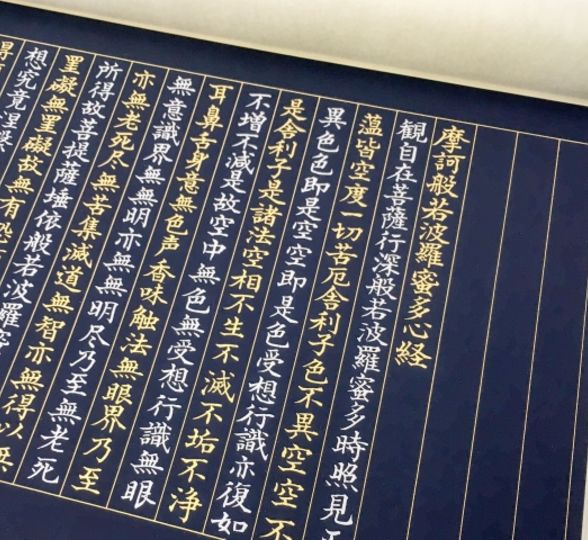 摩訶般若波羅蜜多心経
観自在菩薩行深般若波羅蜜多時照見
蘊皆空度一切苦厄舎利子色不異空空不
異色色即是空空即是色受想行識亦復如
是舎利子是諸法空相不生不滅不垢不浄
不増不減是故空中無色無受想行識無眼
耳鼻舌身意無色声香味触法無眼界乃至
無意識界無無明亦無無明尽乃至無老死
亦無老死尽無苦集滅道無智亦無得以無
所得故菩提薩埵依般若波羅蜜
罣礙無罣礙故無有恐
想究竟涅槃
得